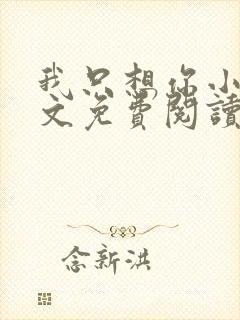 我只想你小
文免費閱讀
念新洪